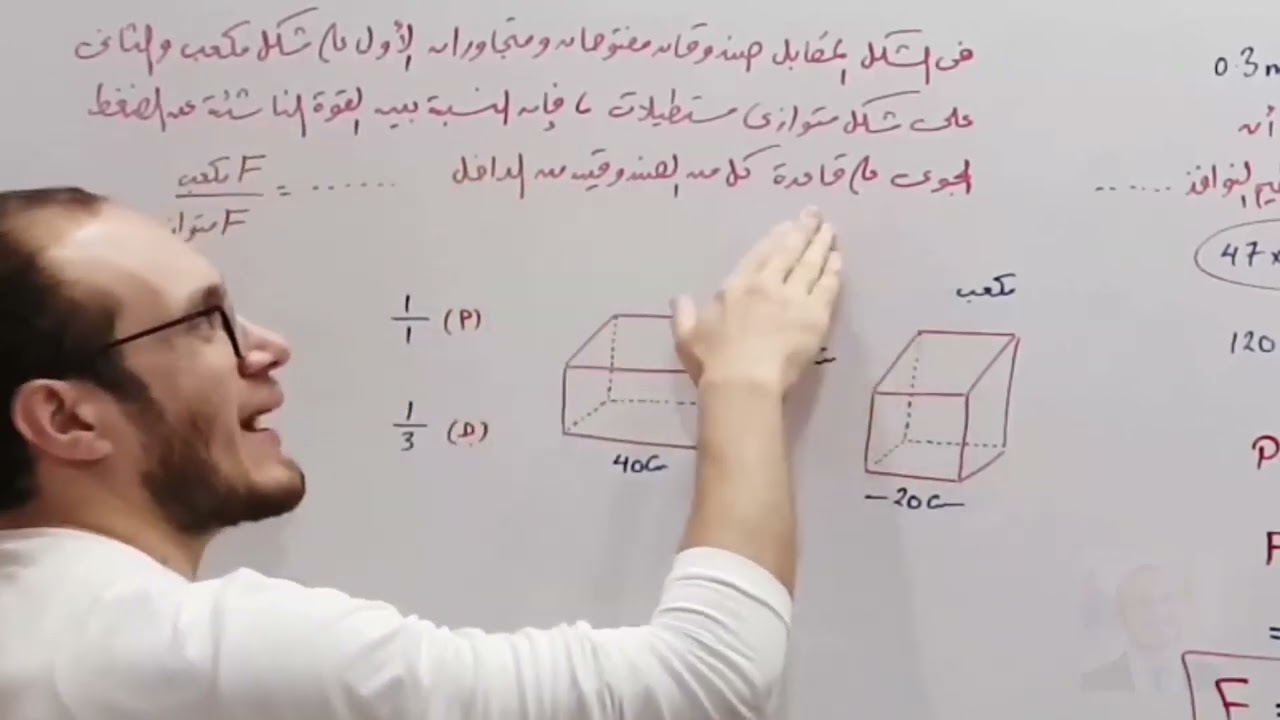 فى الشكل المقابل صندوقان مفتوحان ومتجاوران الأول على شكل مكعب والثانى
على شكل متوازى مستطيلات ، فإن النسبة بين القوة الناشئة عن الضغط
الجوى على قاعدة كل من الصندوقين من الداخل
F مكعب
F متواز
= ......
1/1 (P)
1/3 (D)
40Cـ
مكعب
20Cـ
0.3m
أن
النوافذ ......
47x
120
P
F
=
F